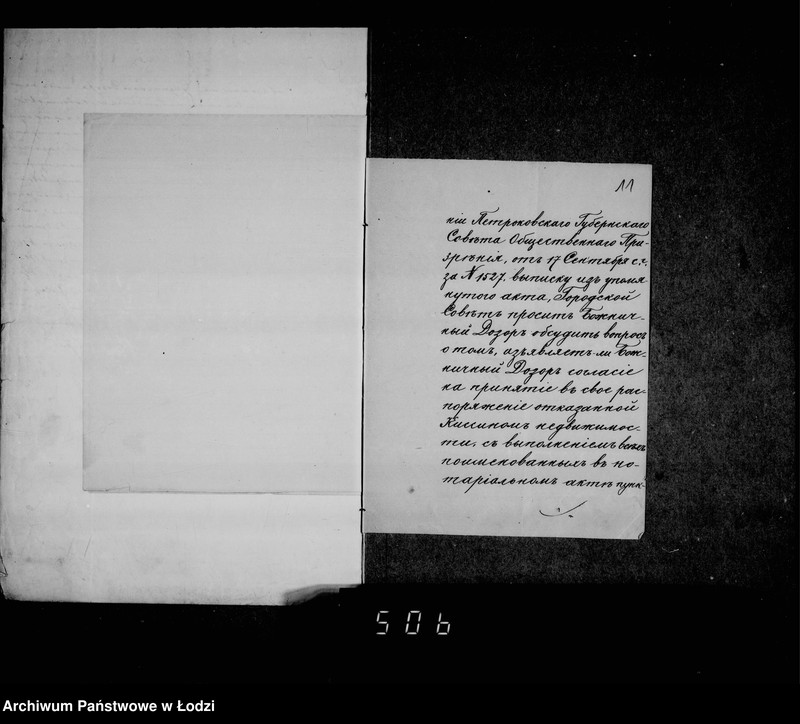 11
нiи Петроковскаго Губернскаго
Совѣта Общественнаго При-
зрѣнiя, отъ 17 Сентября с.г.
за № 1527. выписку изъ упомя
нутого акта, Городской
Совѣтъ проситъ Божнич-
ный Дозоръ обсудить вопросъ
о томъ, изъявляетъ-ли Бож-
ничный Дозоръ согласiе
на принятiе въ свое рас-
поряженiе отказанной
Киссиномъ недвижимос-
ти, съ выполненiемъ всѣхъ
поименованныхъ въ но-
тарiальномъ актѣ пунк-
506
Archiwum Państwowe w Łodzi